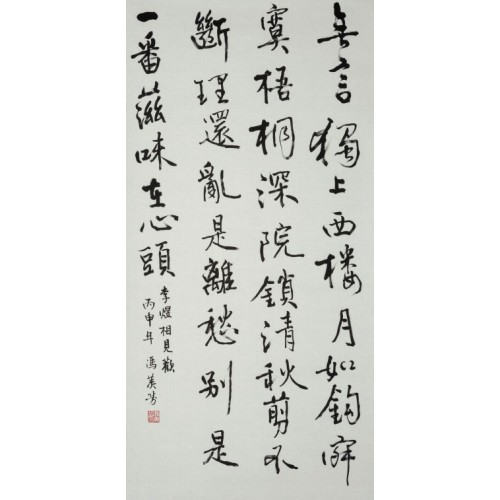 無言獨上西樓月如鈎寂
寞梧桐深院鎖清秋剪不
斷理還亂是離愁别是
一番滋味在心頭
李煜相見歡
丙申年 馮